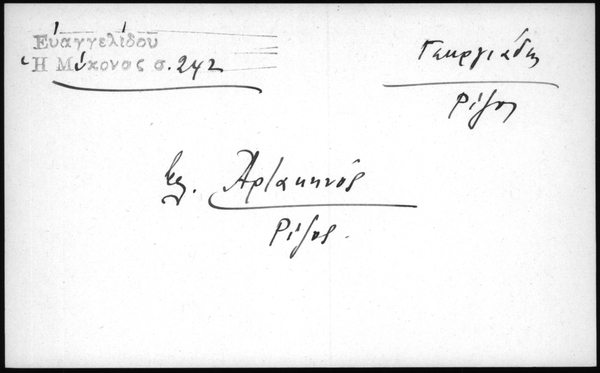 Εὐαγγελίδου
Ἡ Μύκονος σ. 242
Γεωργιάδης
Ρίζος
βλ. Ἀρτακηνός
Ρίζος.